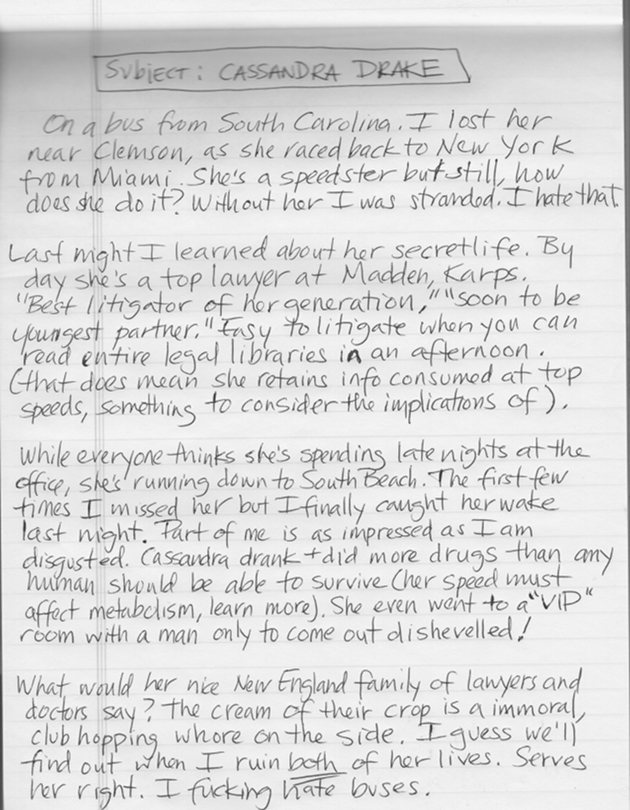 SUBJECT: CASSANDRA DRAKE
On a bus from South Carolina. I lost her
near Clemson, as she raced back to New York
from Miami. She's a speedster but still, how
does she do it? Without her I was stranded. I hate that.
Last night I learned about her secret life. By
day she's a top lawyer at Madden, Karps.
"Best litigator of her generation," "soon to be
youngest partner." Easy to litigate when you can
read entire legal libraries in an afternoon.
(that does mean she retains info consumed at top
speeds, something to consider the implications of).
While everyone thinks she's spending late nights at the
office, she's running down to South Beach. The first few
times I missed her but I finally caught her wake
last night. Part of me is as impressed as I am
disgusted. Cassandra drank + did more drugs than any
human should be able to survive (her speed must
affect metabolism, learn more). She even went to a "VIP"
room with a man only to come out dishevelled!
What would her nice New England family of lawyers and
doctors say? The cream of their crop is a immoral,
club hopping whore on the side. I guess we'll
find out when I ruin both of her lives. Serves
her right. I fucking hate buses.